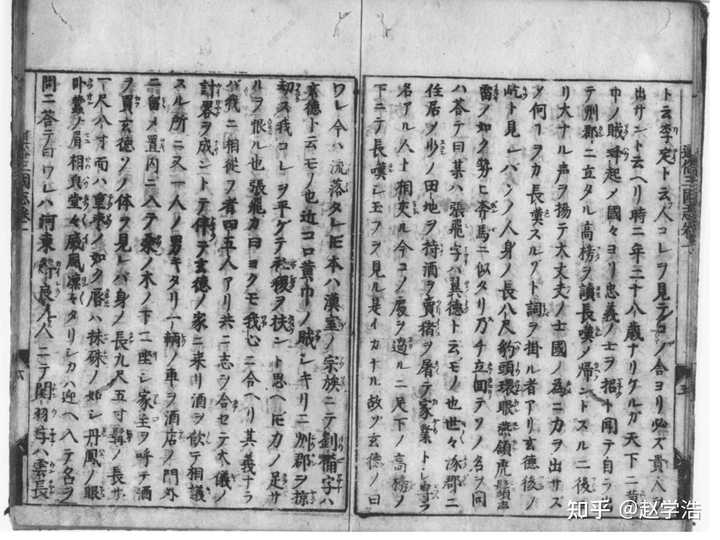 ト云李定ト云人コレヲ見テコノ舎ヨリ必ズ貴人ヲ
出サント云ヘリ時ニ年二十八歳ナリケルガ天下ニ黄
巾ノ賊蜂起メ國々ヨリ忠義ノ士ヲ招ト聞テ自ラ出
テ州郡ニ立タル高榜ヲ讀長嘆メ帰ントスルニ後ヨ
リ大ナル声ヲ揚テ大丈夫ノ士國ノ為ニ力ヲ出サズ
メ何ヲカ長嘆スルゾト詞ヲ掛ル者アリ玄徳後ノ
屹ト見レバソノ人身ノ長八尺豹頭環眼燕頷虎鬚声
雷ノ如ク勢ヒ奔馬ニ似タリ乃チ立回テソノ名ヲ問
ハ答テ曰某ハ張飛字ハ翼徳ト云モノ也世々涿郡ニ
住居メ少ノ田地ヲ持酒ヲ賣猪ヲ屠テ家業トシ専ラ
名アル人ト相交ル今コノ處ヲ過ルニ足下ノ高榜ノ
下ニテ長嘆シ玉フヲ見ル是イカナル故ゾ玄徳ノ曰
ワレ今ハ流落タレ𪜈本ハ漢室ノ宗族ニテ劉備字ハ
玄徳ト云モノ也近コロ黄巾ノ賊シキリニ州郡ヲ掠
劫ス我コレヲ平ゲテ社稷ヲ扶ント思ヘ𪜈力ノ足サ
ルヲ恨ル也張飛カ曰ヨクモ我心ニ合ヘリ其義ナラ
バ我ニ相從フ者四五人アリ共ニ志ヲ合セテ大儀ノ
計畧ヲ成ントテ伴テ玄徳ノ家ニ来リ酒ヲ飲テ相議
スル所ニ又一人ノ男キタリ一輌ノ車ヲ酒店ノ門外
ニ留メ置内ニ入テ桑ノ木ノ下ニ座シ家主ヲ呼テ酒
ヲ買玄徳ソノ体ヲ見レバ身ノ長九尺五寸髯ノ長サ
一尺八寸面ハ重棗ノ如ク唇ハ抹硃ノ如シ丹鳳ノ眼
卧蠶ノ眉相貌堂々威風凛々タリシカハ迎ヘ入テ名ヲ
問ニ答テ曰ワレハ河東解良ノ人ニテ関羽字ハ雲長
知乎 @赵学浩